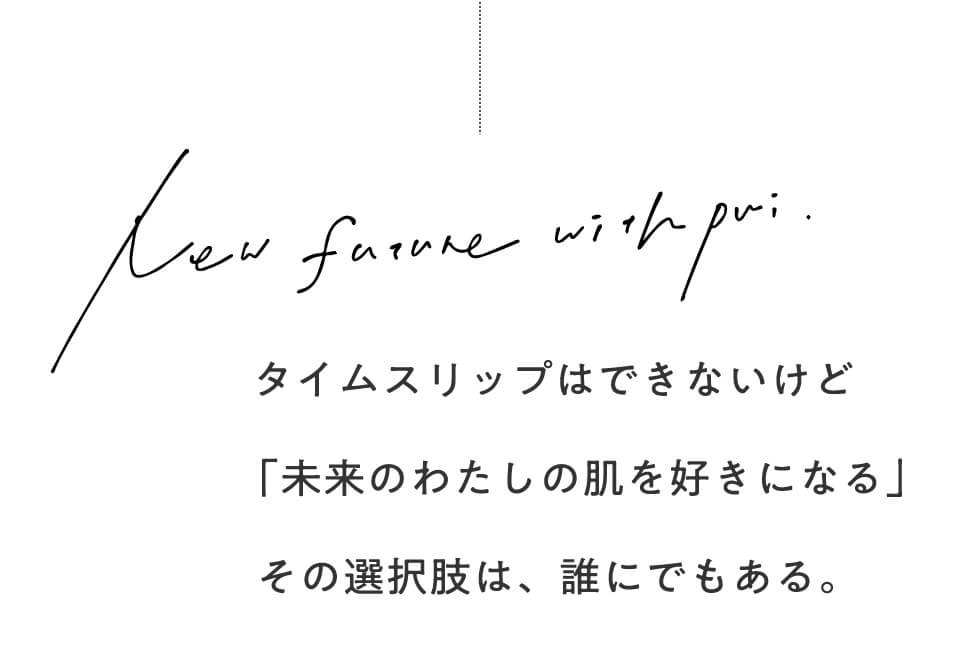 New future with pui.
タイムスリップはできないけど
「未来のわたしの肌を好きになる」
その選択肢は、誰にでもある。